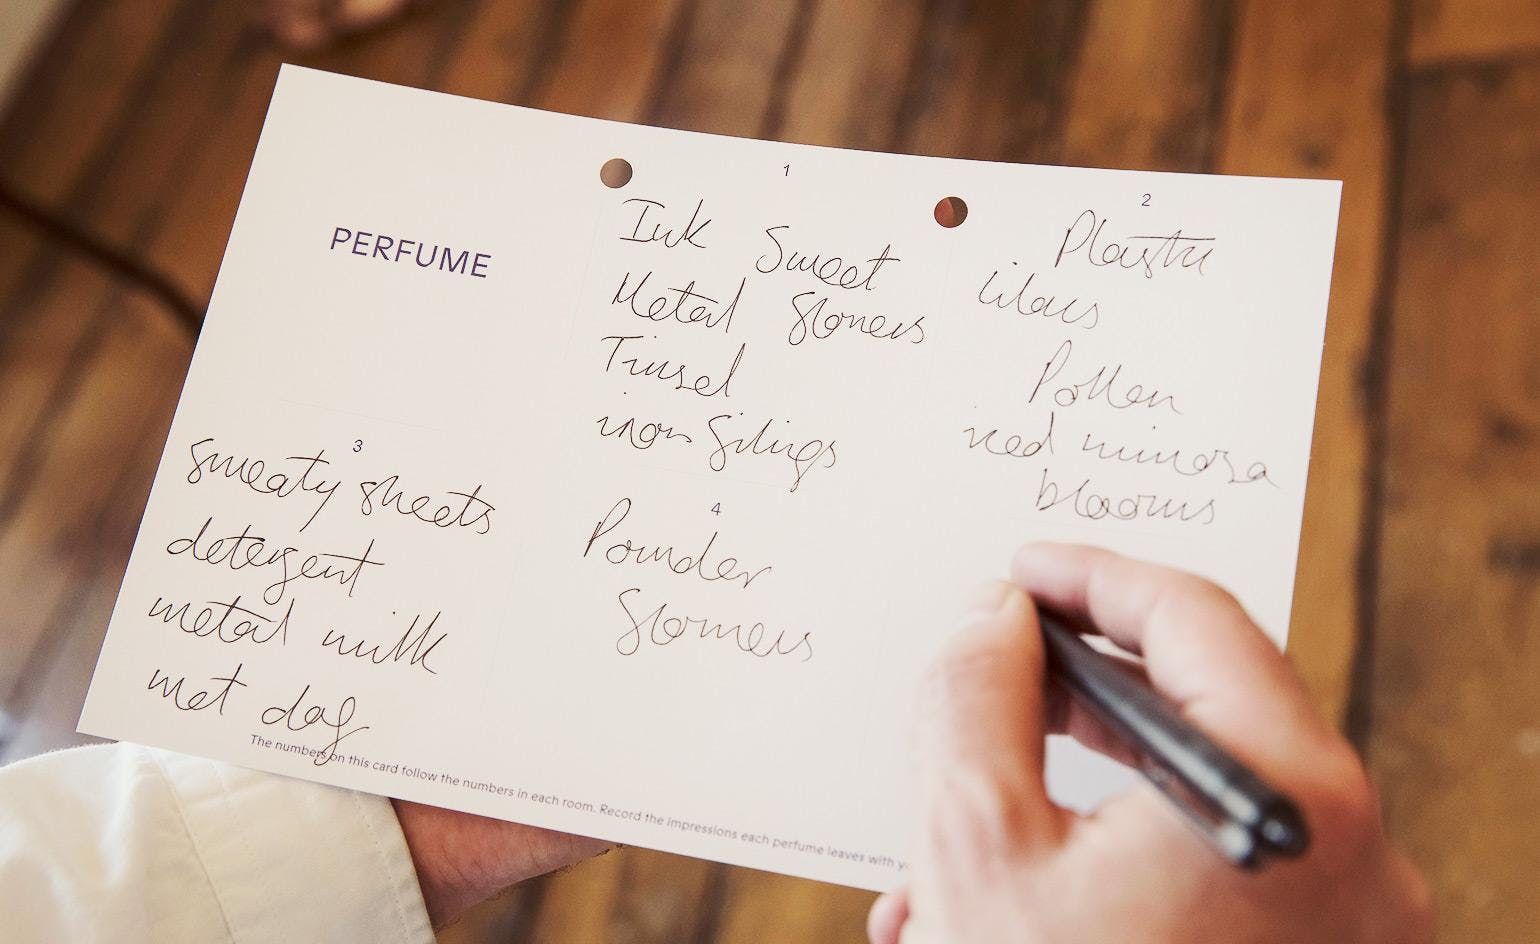 PERFUME
1
Ink Sweet
Metal flowers
Tinsel
iron filings
2
Plastic
lilacs
Pollen
iced mimosa
blooms
3
Sweaty sheets
detergent
metal milk
wet dog
4
Powder
flowers
The numbers on this card follow the numbers in each room. Record the impressions each perfume leaves with